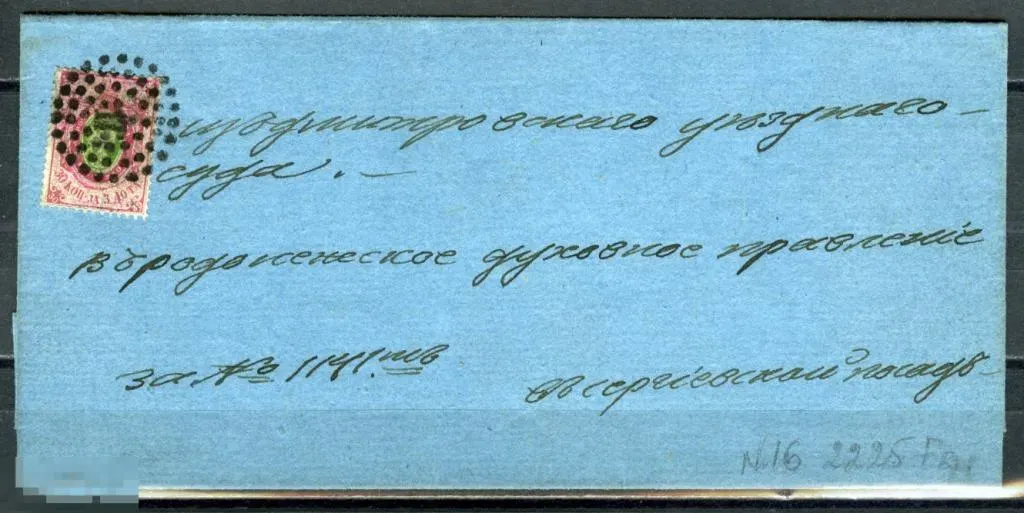 изъ дмитровскаго уѣзднаго
суда.
30 КОП. ЗА 3 ЛОТА
духовное правленіе
за № 1141.мъ
въ сергіевскомъ посадѣ
№16 2225